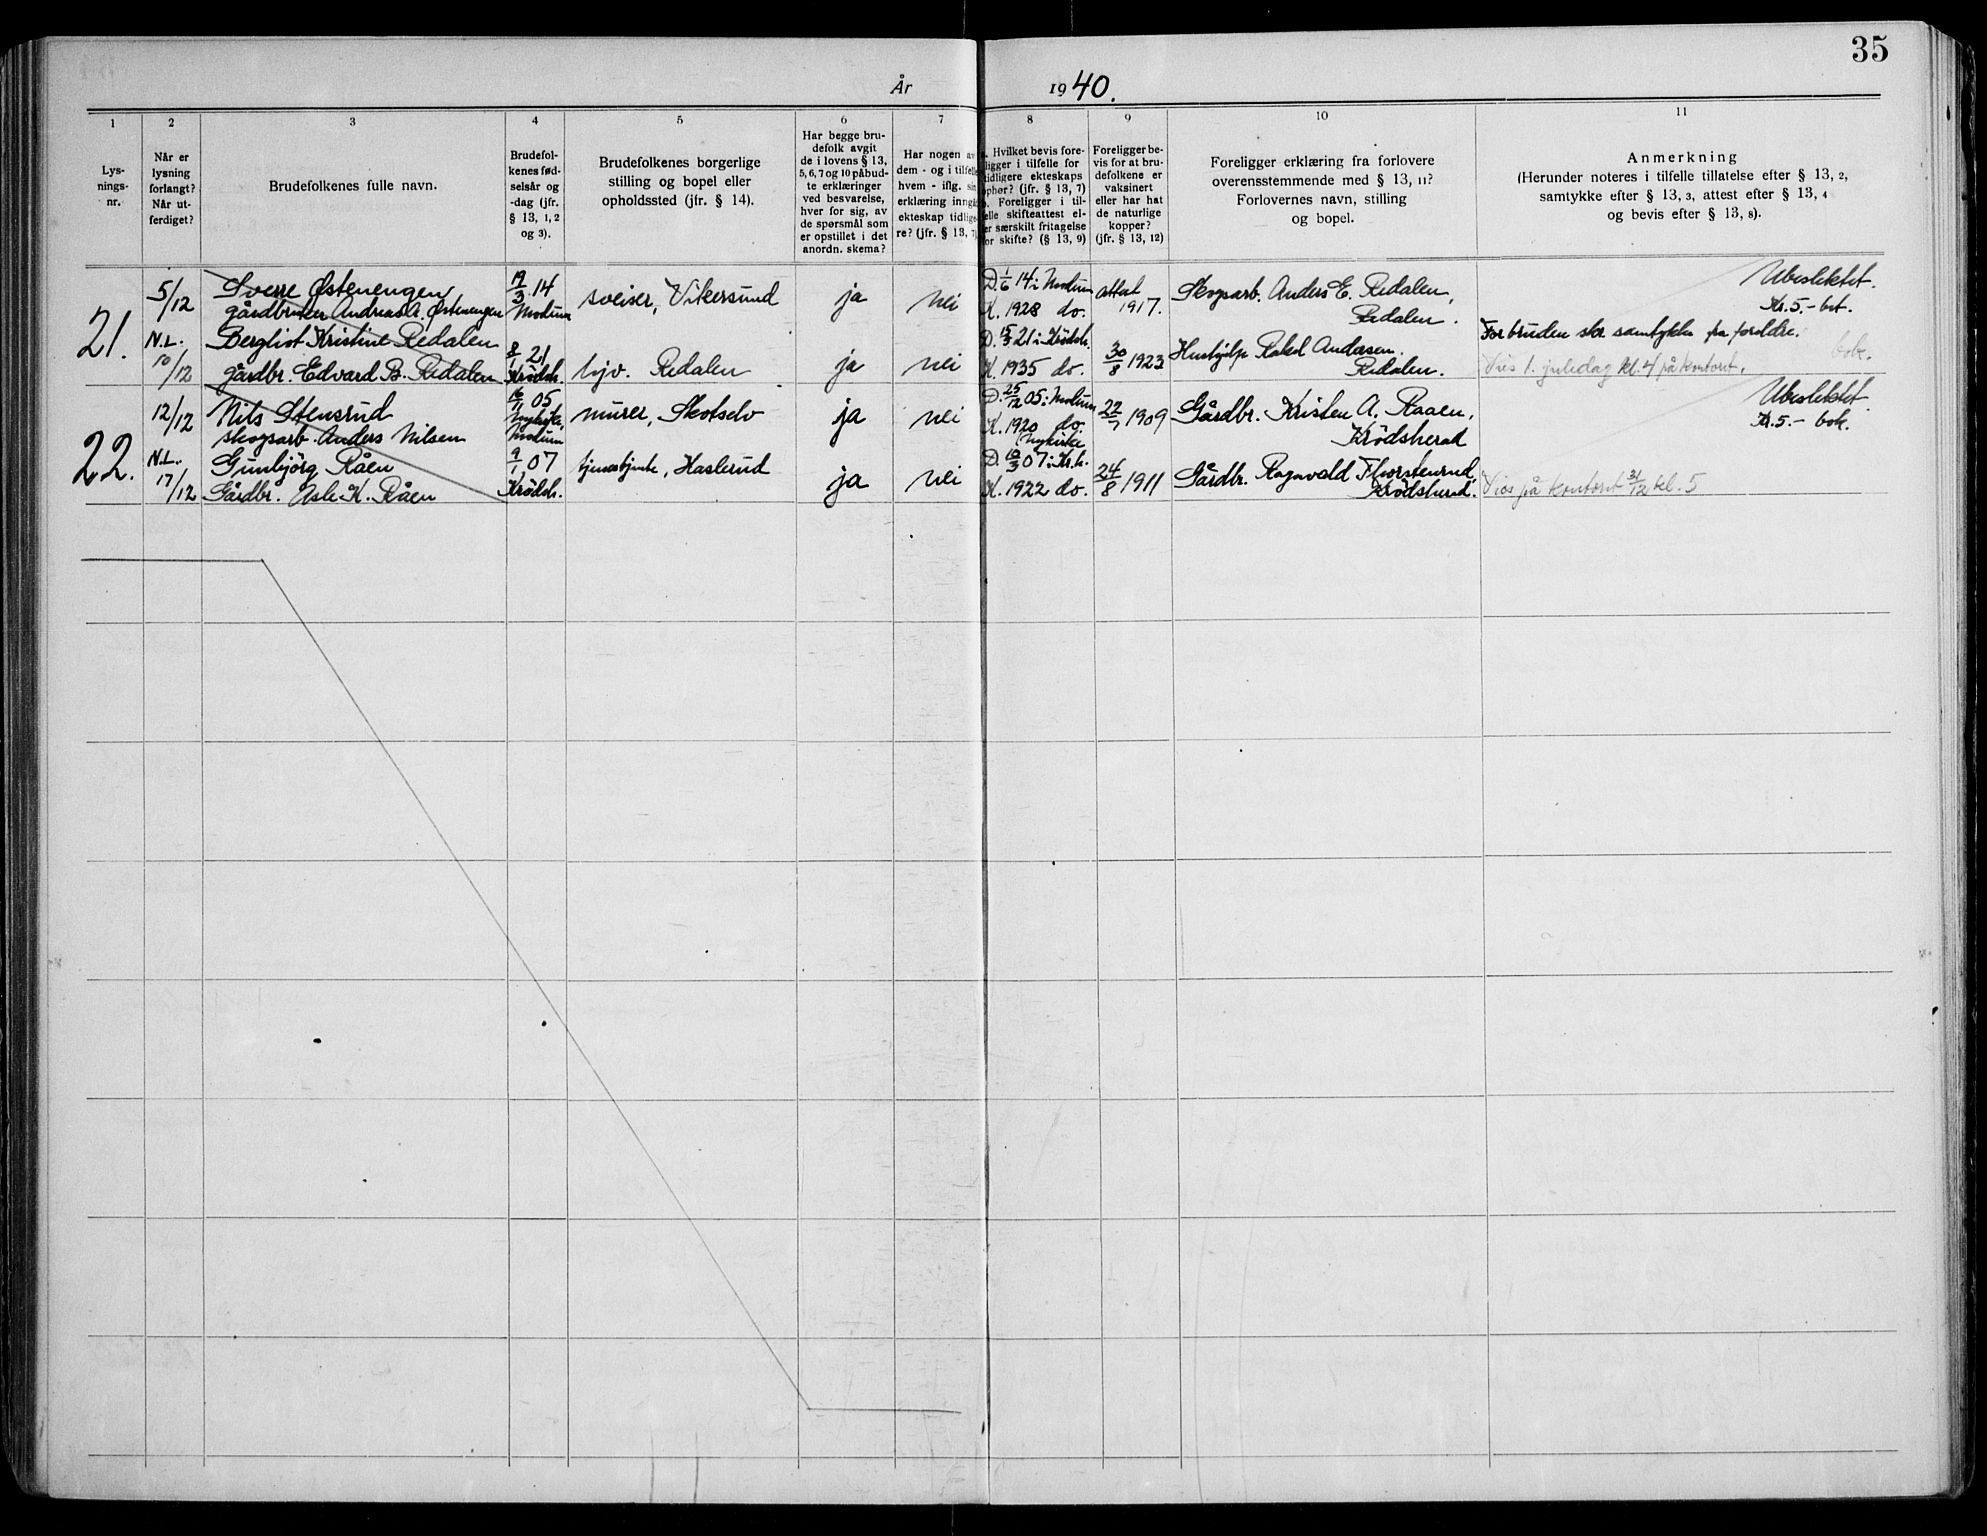 35
År 1940.
1
2
3
4
5
6
7
8
9
10
11
Lys-
nings-
nr.
Når er
lysning
forlangt?
Når ut-
ferdiget?
Brudefolkenes fulle navn.
Brudefol-
kenes fød-
selsår og
-dag (jfr.
§ 13, 1, 2
og 3).
Brudefolkenes borgerlige
stilling og bopel eller
opholdssted (jfr. § 14).
Har begge bru-
defolk avgit
de i lovens § 13,
5, 6, 7 og 10 påbud-
te erklæringer
ved besvarelse,
hver for sig, av
de spørsmål som
er opstillet i det
anordn. skema?
Har nogen av
dem - og i tilfelle
hvem - iflg. sin
erklæring inngått
ekteskap tidlige-
re? (jfr. § 13, 7)
Hvilket bevis fore-
ligger i tilfelle for
tidligere ekteskaps
ophør? (jfr. § 13, 7)
Foreligger i til-
felle skifteattest el-
er særskilt fritagelse
for skifte? (§ 13, 9)
Foreligger be-
vis for at bru-
defolkene er
vaksinert
eller har hat
de naturlige
kopper?
(jfr. § 13, 12)
Foreligger erklæring fra forlovere
overensstemmende med § 13, 11?
Forlovernes navn, stilling
og bopel.
Anmerkning
(Herunder noteres i tilfelle tillatelse efter § 13, 2,
samtykke efter § 13, 3, attest efter § 13, 4
og bevis efter § 13, 8).
21.
5/12
N.L.
10/12
Sverre Østenengen
gårdbruker Andreas Østenengen
Bergliot Kristine Redalen
gårdbr. Edvard B. Redalen
19/3 14
Modum
8/1 21
Krødsh.
sveiser, Vikersund
hjv. Redalen
ja
ja
nei
nei
D. 1/6 14 i Modum
K. 1928 do.
D. 15/3 21 i Krødsh.
K. 1935 do.
attest
1917.
30/8 1923
Skogsarb. Anders E. Redalen,
Redalen.
Hushjelp Rakel Andersen
Redalen.
Ubeslektet.
Kr. 5.- bet.
For bruden skr. samtykke fra foreldre.
bok.
Vies 1. juledag kl. 4 på kontoret.
22.
12/12
N.L.
17/12
Nils Stensrud
skogsarb. Anders Nilsen
Gunbjörg Råen
Gårdbr. Asle K. Råen
16/11 05
Nykirke,
Modum
9/1 07
Krødsh.
murer, Skotselv
tjenestjente, Haslerud
ja
ja
nei
nei
D. 25/12 05 i Modum
K. 1920 do.
Nykirke
D. 10/3 07 i Kr.h.
K. 1922 do.
22/7 1909
24/8 1911
Gårdbr. Kristen A. Raaen,
Krödsherad
Gårdbr. Ragnvald Thorstenrud,
Krödsherad.
Ubeslektet.
Kr. 5.- bok.
Vies på kontoret 31/12 kl. 5